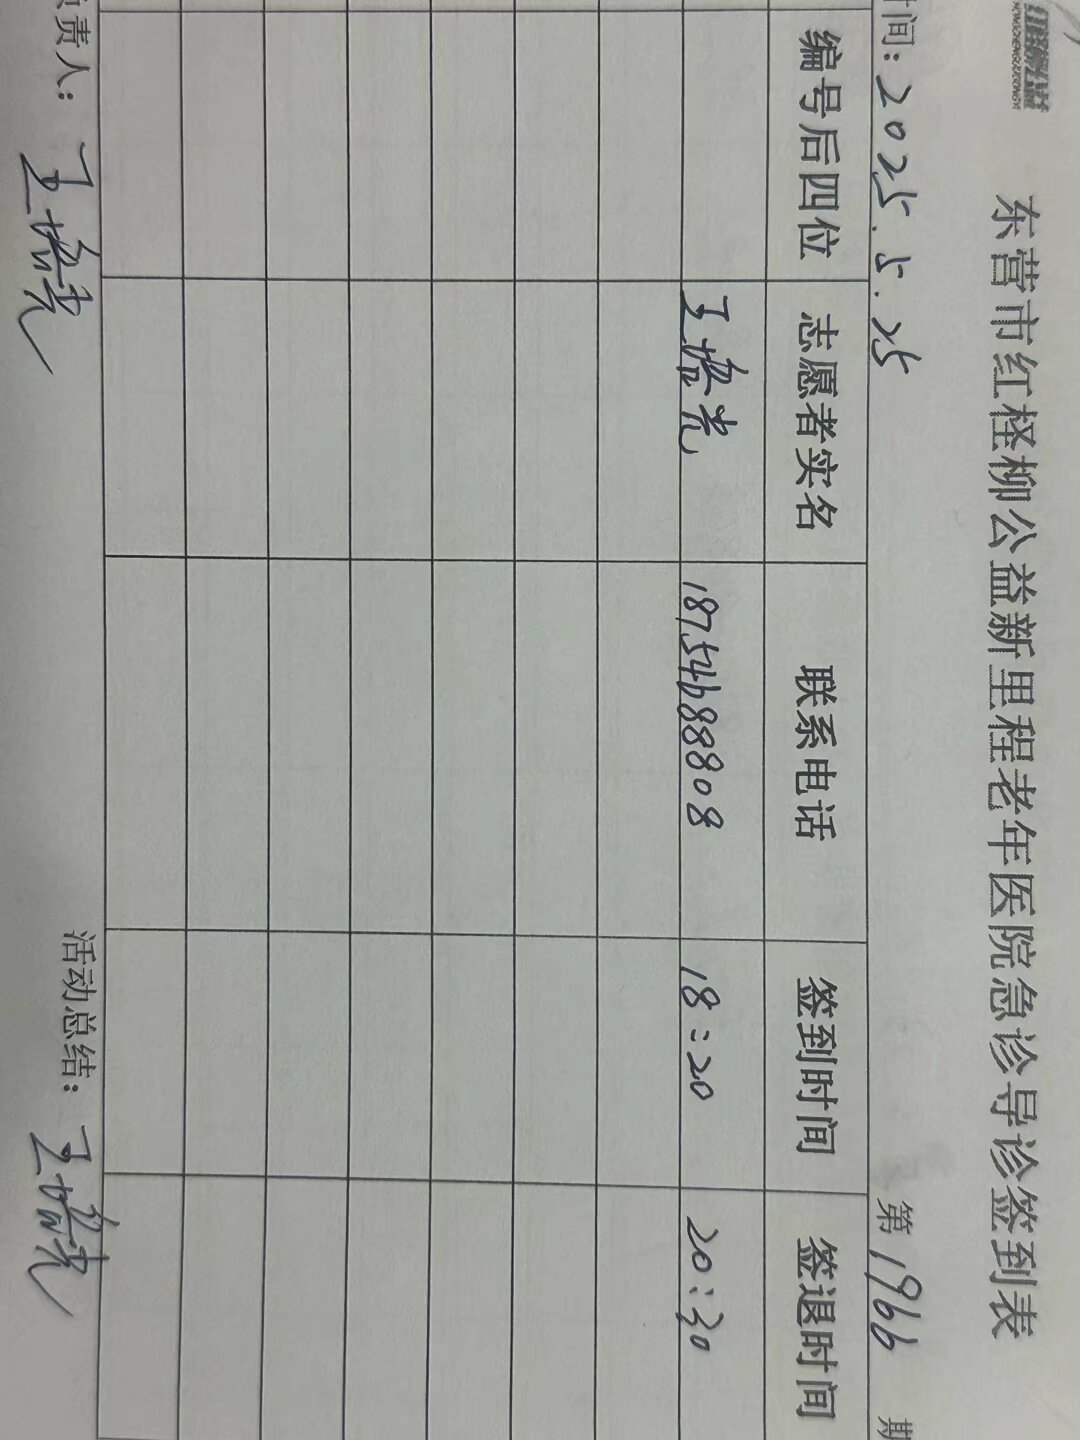 东营市红柽柳公益新里程老年医院急诊导诊签到表
间：2025.5.25 第1966期
编号后四位 志愿者实名 联系电话 签到时间 签退时间
王培光 18754688808 18:20 20:30
责人：王培光 活动总结：王培光